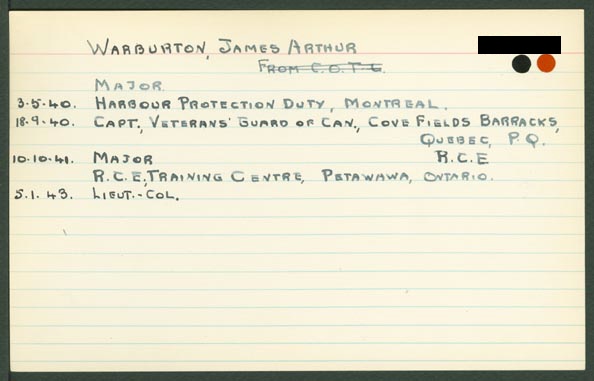 WARBURTON, JAMES ARTHUR
FROM C.O.T.C.
MAJOR
3.5.40. HARBOUR PROTECTION DUTY, MONTREAL.
18.9.40. CAPT., VETERANS' GUARD OF CAN., COVE FIELDS BARRACKS,
QUEBEC, P.Q.
10.10.41. MAJOR R.C.E
R.C.E, TRAINING CENTRE, PETAWAWA, ONTARIO.
5.1.43. LIEUT.-COL.